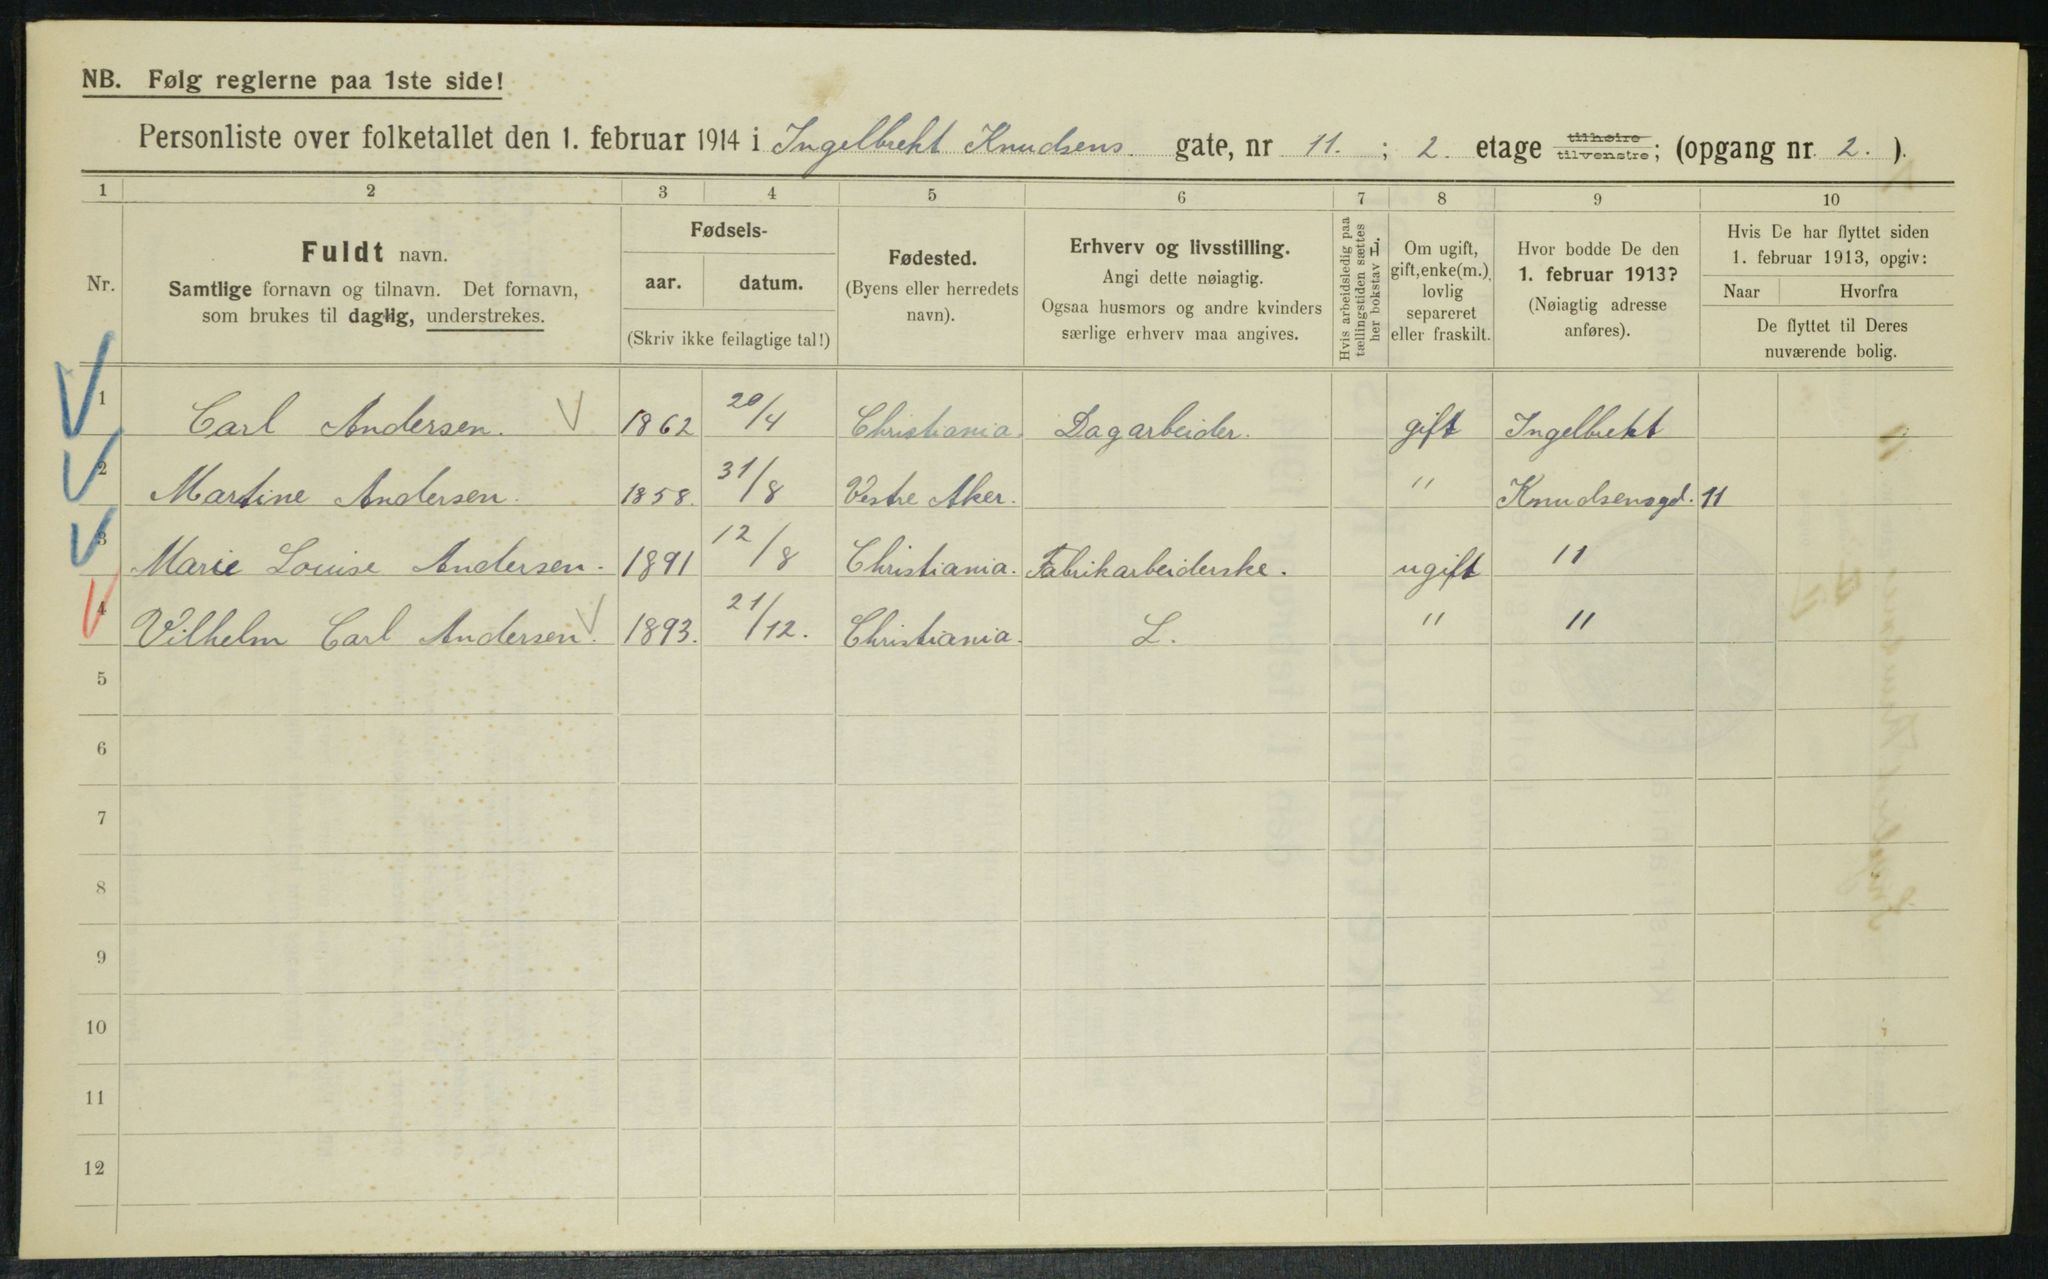 NB. Følg reglerne paa 1ste side!
Personliste over folketallet den 1. februar 1914 i Ingelbrekt Knudsens gate, nr 11. ; 2. etage tilhøire tilvenstre; (opgang nr. 2. ).
1 2 3 4 5 6 7 8 9 10
Nr.
Fuldt navn.
Samtlige fornavn og tilnavn. Det fornavn,
som brukes til daglig, understrekes.
Fødsels-
aar. datum.
(Skriv ikke feilagtige tal!)
Fødested.
(Byens eller herredets
navn).
Erhverv og livsstilling.
Angi dette nøiagtig.
Ogsaa husmors og andre kvinders
særlige erhverv maa angives.
Hvis arbeidsledig paa
tællingstiden sættes
her bokstav L.
Om ugift,
gift, enke(m.),
lovlig
separeret
eller fraskilt.
Hvor bodde De den
1. februar 1913?
(Nøiagtig adresse
anføres).
Hvis De har flyttet siden
1. februar 1913, opgiv:
Naar Hvorfra
De flyttet til Deres
nuværende bolig.
1 Carl Andersen. 1862 20/4 Christiania. Dagarbeider. gift Ingelbrekt
2 Martine Andersen. 1858. 31/8 Vestre Aker. " Knudsensgd. 11
3 Marie Louise Andersen. 1891 12/8 Christiania. Fabrikarbeiderske. ugift "
4 Vilhelm Carl Andersen. 1893. 21/12. Christiania. L. " "
5
6
7
8
9
10
11
12